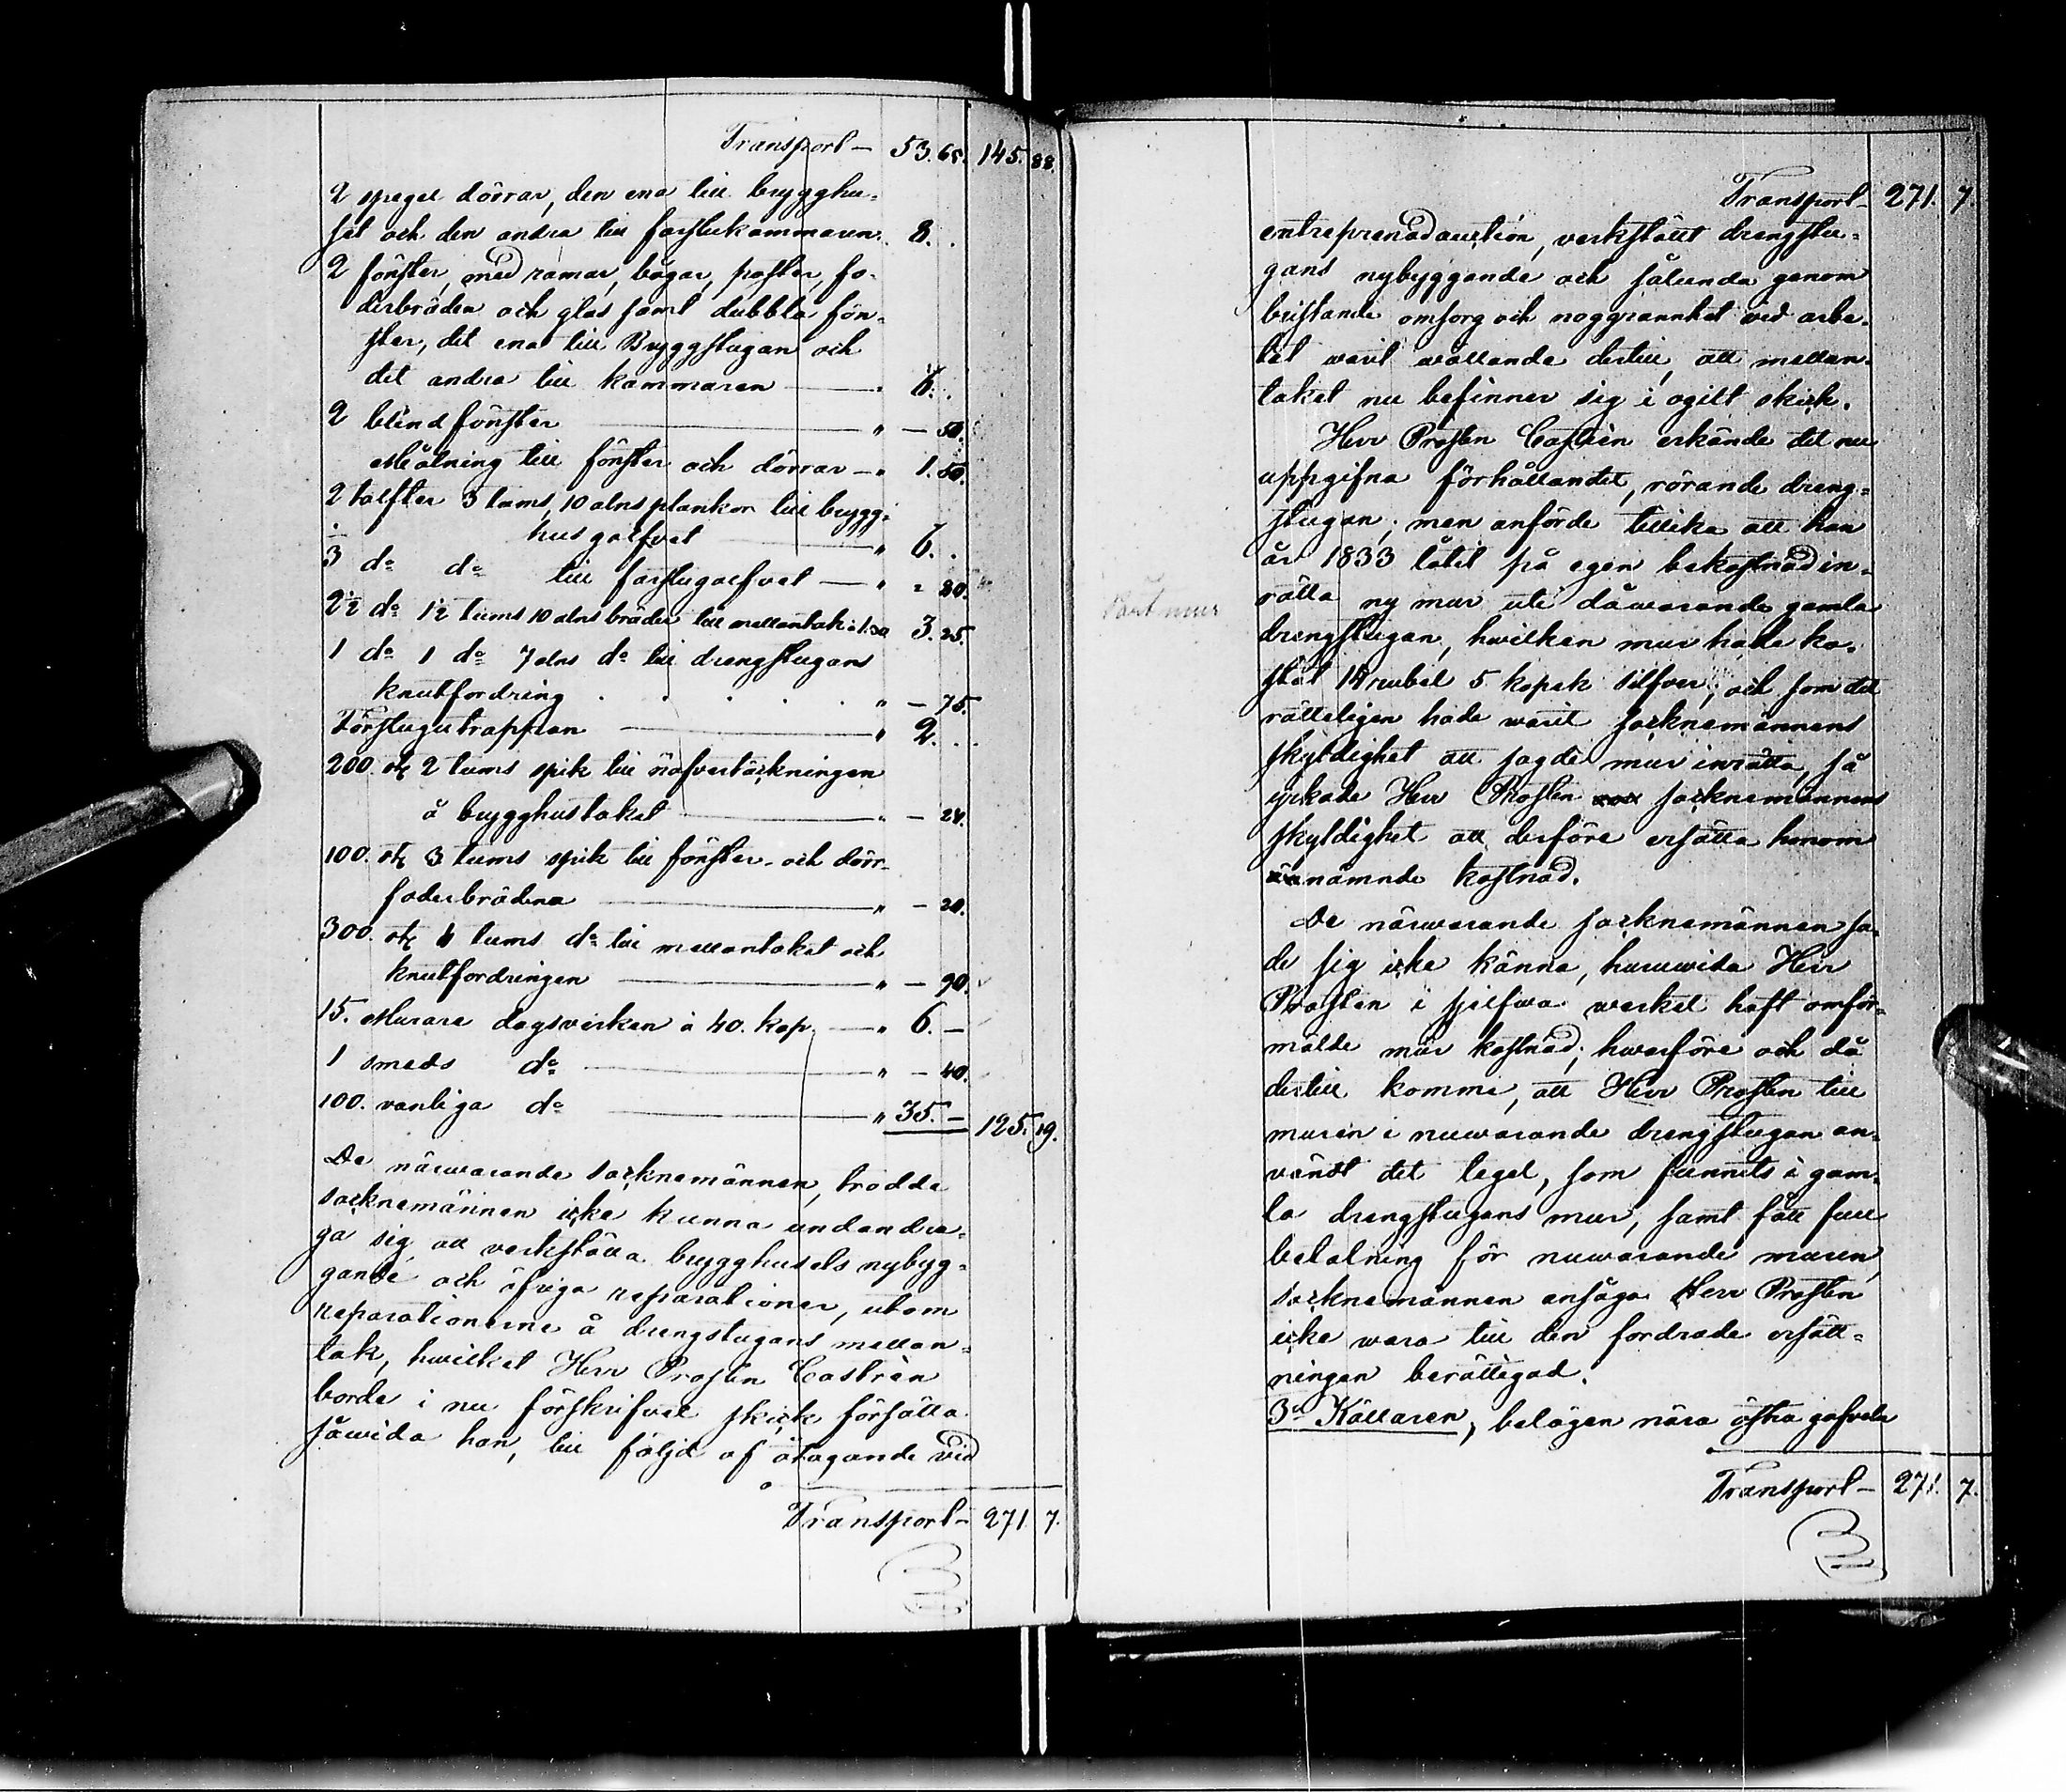 Transport — 53. 65. 145. 88.
2 spegel dörrar, den ena till brygghu-
set och den andra till farstukammaren. 8. .
2 fönster, med ramar, bågar, poster, fo-
derbräden och glas samt dubbla fön-
ster, det ena till Bryggstugan och
det andra till kammaren — " 6. .
2 blindfönster — " — 50.
Målning till fönster och dörrar — " 1. 50.
2 tolfter 3 tums, 10 alns plankor till brygg-
husgolfvet — " 6. .
do do till farstugolfvet — " 80.
2½ do 1½ tums 10 alns bräder till mellantak à 1.30 3. 25.
1 do 1 do 7 alns do till drengstugans
knutfordring . . . . " — 75.
Förstugutrappan — " 2. .
200. st 2 tums spik till näfvertäckningen
å brygghustaket — " — 24.
100. st 3 tums spik till fönster- och dörr-
foderbrädena — " — 20.
300. st 4 tums do till mellantaket och
knutfordringen — " — 90.
15. Murare dagsverken à 40. kop. — " 6. —
1 smeds do — " — 40.
100. vanliga do — " 35. — 125. 19.
De närwarande socknemännen, trodde
socknemännen icke kunna undandra-
ga sig att verkställa brygghusets nybyg-
gande och öfriga reparationer, utom
reparationerne å drengstugans mellan-
tak, hwilket Herr Prosten Castrèn
borde i nu förskrifvet skick försätta
såwida han, till följd af åtagande vid
Transport — 271. 7.
Transport — 271. 7
entreprenadauction, verkstält drengstu-
gans nybyggande och sålunda genom
bristande omsorg och noggrannhet vid arbe-
tet warit wållande dertill, att mellan-
taket nu befinner sig i ogilt skick.
Herr Prosten Castrèn erkände det nu
uppgifna förhållandet, rörande dreng-
stugan; men anförde tillika att han
år 1833 låtit på egen bekostnad in-
rätta ny mur uti dåwarande gamla
drengstugan, hwilken mur hade ko-
stat rubel 5 kopek silfver; och som det
rätteligen hade warit socknemännens
skyldighet att sagde mur inrätta, så
yrkade Herr Prosten socknemännens
skyldighet att derföre ersätta honom
nämnde kostnad.
De närwarande socknemännen sa-
de sig icke känna, huruwida Herr
Prosten i sjelfwa werket haft omför-
mälde mur kostnad; hwarföre och då
dertill komme, att Herr Prosten till
muren i nuwarande drengstugan an-
vändt det tegel, som funnits i gam-
la drengstugans mur, samt fått full
betalning för nuwarande muren,
socknemännen ansågo Herr Prosten
icke wara till den fordrade ersätt-
ningen berättigad.
3o Källaren, belägen nära östra gafveln
Transport — 271. 7.